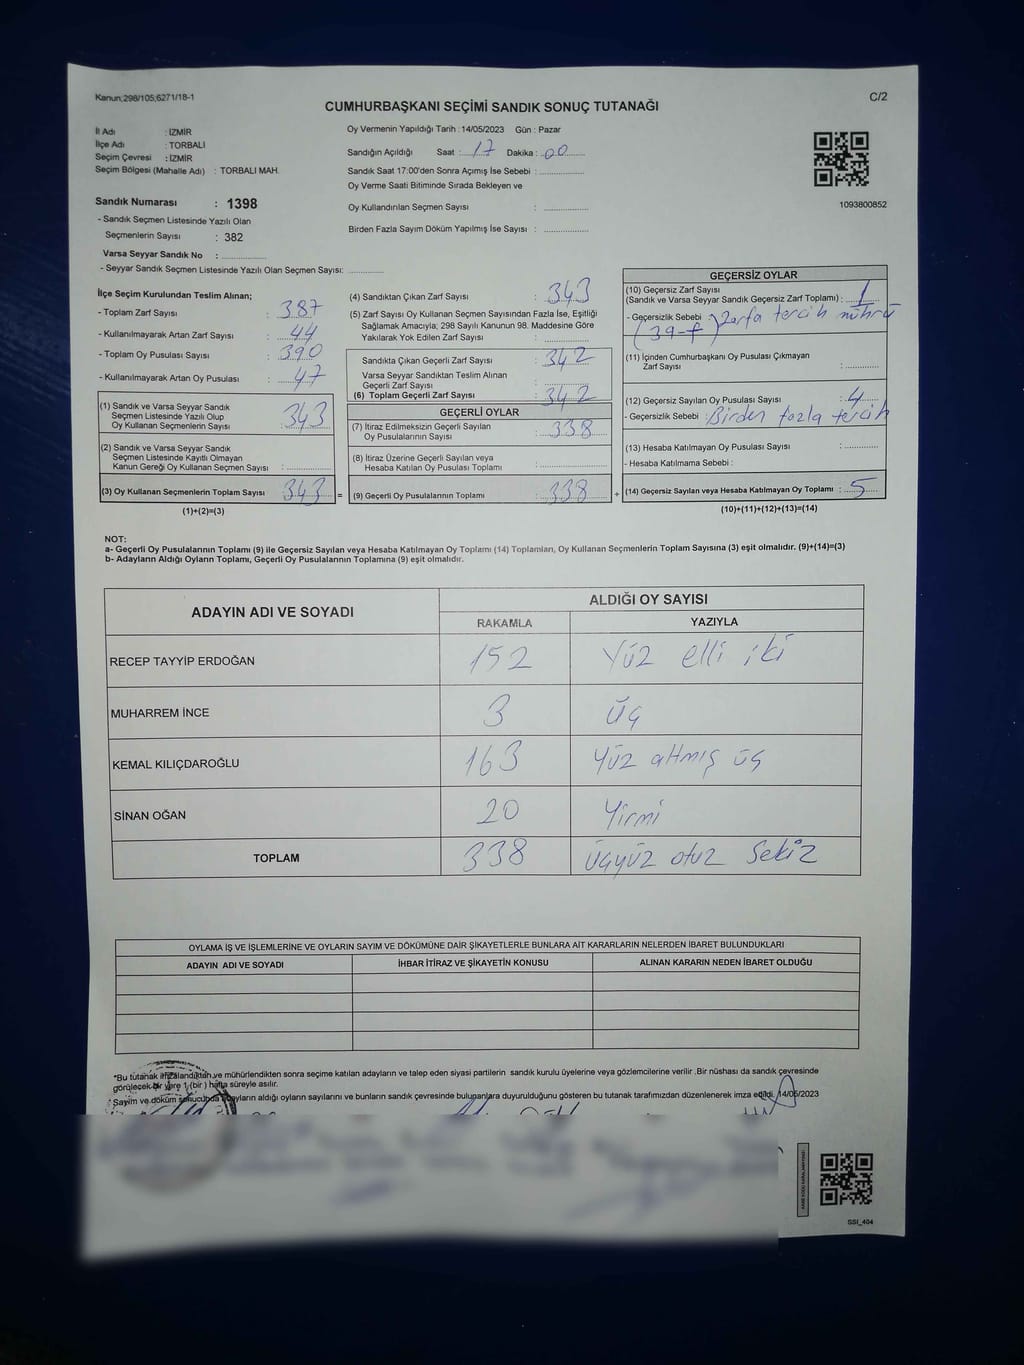 Kanun;298/105;6271/18-1
C/2
CUMHURBAŞKANI SEÇİMİ SANDIK SONUÇ TUTANAĞI
İl Adı : İZMİR
İlçe Adı : TORBALI
Seçim Çevresi : İZMİR
Seçim Bölgesi (Mahalle Adı) : TORBALI MAH.
Oy Vermenin Yapıldığı Tarih : 14/05/2023 Gün : Pazar
Sandığın Açıldığı Saat : 17 Dakika : 00
Sandık Saat 17:00'den Sonra Açımış İse Sebebi :
Oy Verme Saati Bitiminde Sırada Bekleyen ve
Oy Kullandırılan Seçmen Sayısı :
Birden Fazla Sayım Döküm Yapılmış İse Sayısı :
1093800852
Sandık Numarası : 1398
- Sandık Seçmen Listesinde Yazılı Olan
Seçmenlerin Sayısı : 382
Varsa Seyyar Sandık No :
- Seyyar Sandık Seçmen Listesinde Yazılı Olan Seçmen Sayısı:
İlçe Seçim Kurulundan Teslim Alınan;
- Toplam Zarf Sayısı : 387
- Kullanılmayarak Artan Zarf Sayısı : 44
- Toplam Oy Pusulası Sayısı : 390
- Kullanılmayarak Artan Oy Pusulası : 47
(1) Sandık ve Varsa Seyyar Sandık
Seçmen Listesinde Yazılı Olup
Oy Kullanan Seçmenlerin Sayısı : 343
(2) Sandık ve Varsa Seyyar Sandık
Seçmen Listesinde Kayıtlı Olmayan
Kanun Gereği Oy Kullanan Seçmen Sayısı :
(3) Oy Kullanan Seçmenlerin Toplam Sayısı : 343 =
(1)+(2)=(3)
(4) Sandıktan Çıkan Zarf Sayısı : 343
(5) Zarf Sayısı Oy Kullanan Seçmen Sayısından Fazla İse, Eşitliği
Sağlamak Amacıyla; 298 Sayılı Kanunun 98. Maddesine Göre
Yakılarak Yok Edilen Zarf Sayısı :
Sandıkta Çıkan Geçerli Zarf Sayısı : 342
Varsa Seyyar Sandıktan Teslim Alınan
Geçerli Zarf Sayısı :
(6) Toplam Geçerli Zarf Sayısı : 342
GEÇERLİ OYLAR
(7) İtiraz Edilmeksizin Geçerli Sayılan
Oy Pusulalarının Sayısı : 338
(8) İtiraz Üzerine Geçerli Sayılan veya
Hesaba Katılan Oy Pusulası Toplamı :
(9) Geçerli Oy Pusulalarının Toplamı : 338 +
GEÇERSİZ OYLAR
(10) Geçersiz Zarf Sayısı
(Sandık ve Varsa Seyyar Sandık Geçersiz Zarf Toplamı) : 1
- Geçersizlik Sebebi : Zarfa tercih mührü
(39-f)
(11) İçinden Cumhurbaşkanı Oy Pusulası Çıkmayan
Zarf Sayısı :
(12) Geçersiz Sayılan Oy Pusulası Sayısı : 4
- Geçersizlik Sebebi : Birden fazla tercih
(13) Hesaba Katılmayan Oy Pusulası Sayısı :
- Hesaba Katılmama Sebebi :
(14) Geçersiz Sayılan veya Hesaba Katılmayan Oy Toplamı : 5
(10)+(11)+(12)+(13)=(14)
NOT:
a- Geçerli Oy Pusulalarının Toplamı (9) ile Geçersiz Sayılan veya Hesaba Katılmayan Oy Toplamı (14) Toplamları, Oy Kullanan Seçmenlerin Toplam Sayısına (3) eşit olmalıdır. (9)+(14)=(3)
b- Adayların Aldığı Oyların Toplamı, Geçerli Oy Pusulalarının Toplamına (9) eşit olmalıdır.
ADAYIN ADI VE SOYADI ALDIĞI OY SAYISI
RAKAMLA YAZIYLA
RECEP TAYYİP ERDOĞAN 152 Yüz elli iki
MUHARREM İNCE 3 üç
KEMAL KILIÇDAROĞLU 163 Yüz altmış üç
SİNAN OĞAN 20 Yirmi
TOPLAM 338 üçyüz otuz sekiz
OYLAMA İŞ VE İŞLEMLERİNE VE OYLARIN SAYIM VE DÖKÜMÜNE DAİR ŞİKAYETLERLE BUNLARA AİT KARARLARIN NELERDEN İBARET BULUNDUKLARI
ADAYIN ADI VE SOYADI İHBAR İTİRAZ VE ŞİKAYETİN KONUSU ALINAN KARARIN NEDEN İBARET OLDUĞU
*Bu tutanak imzalandıktan ve mühürlendikten sonra seçime katılan adayların ve talep eden siyasi partilerin sandık kurulu üyelerine veya gözlemcilerine verilir .Bir nüshası da sandık çevresinde
görülecek bir yere 1 (bir ) hafta süreyle asılır.
* Sayım ve döküm sonucunda adayların aldığı oyların sayılarını ve bunların sandık çevresinde bulunanlara duyurulduğunu gösteren bu tutanak tarafımızdan düzenlenerek imza edildi. 14/05/2023
SSI_404